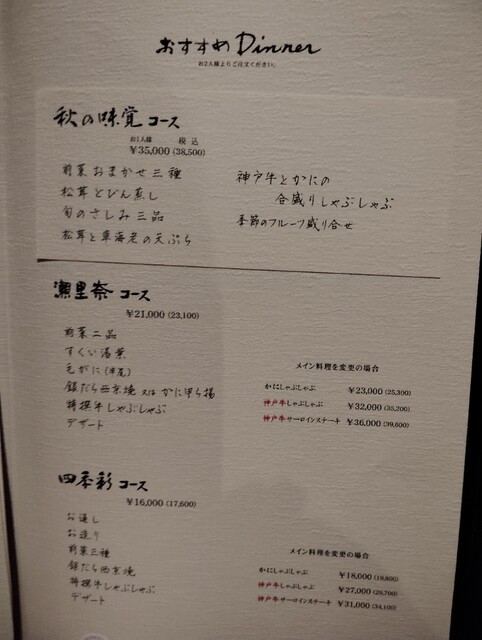 おすすめ Dinner
お2人様よりご注文ください。
秋の味覚コース
お1人様 税込
¥35,000 (38,500)
前菜おまかせ三種
松茸とびん蒸し
旬のさしみ三品
松茸と車海老の天ぷら
神戸牛とかにの
合盛りしゃぶしゃぶ
季節のフルーツ盛り合せ
瀬里奈コース
¥21,000 (23,100)
前菜二品
すくい湯葉
毛がに(半尾)
銀だら西京焼 又は かに甲ら揚
特撰牛しゃぶしゃぶ
デザート
メイン料理を変更の場合
かにしゃぶしゃぶ ¥23,000 (25,300)
神戸牛しゃぶしゃぶ ¥32,000 (35,200)
神戸牛サーロインステーキ ¥36,000 (39,600)
四季彩コース
¥16,000 (17,600)
お通し
お造り
前菜三種
銀だら西京焼
特撰牛しゃぶしゃぶ
デザート
メイン料理を変更の場合
かにしゃぶしゃぶ ¥18,000 (19,800)
神戸牛しゃぶしゃぶ ¥27,000 (29,700)
神戸牛サーロインステーキ ¥31,000 (34,100)